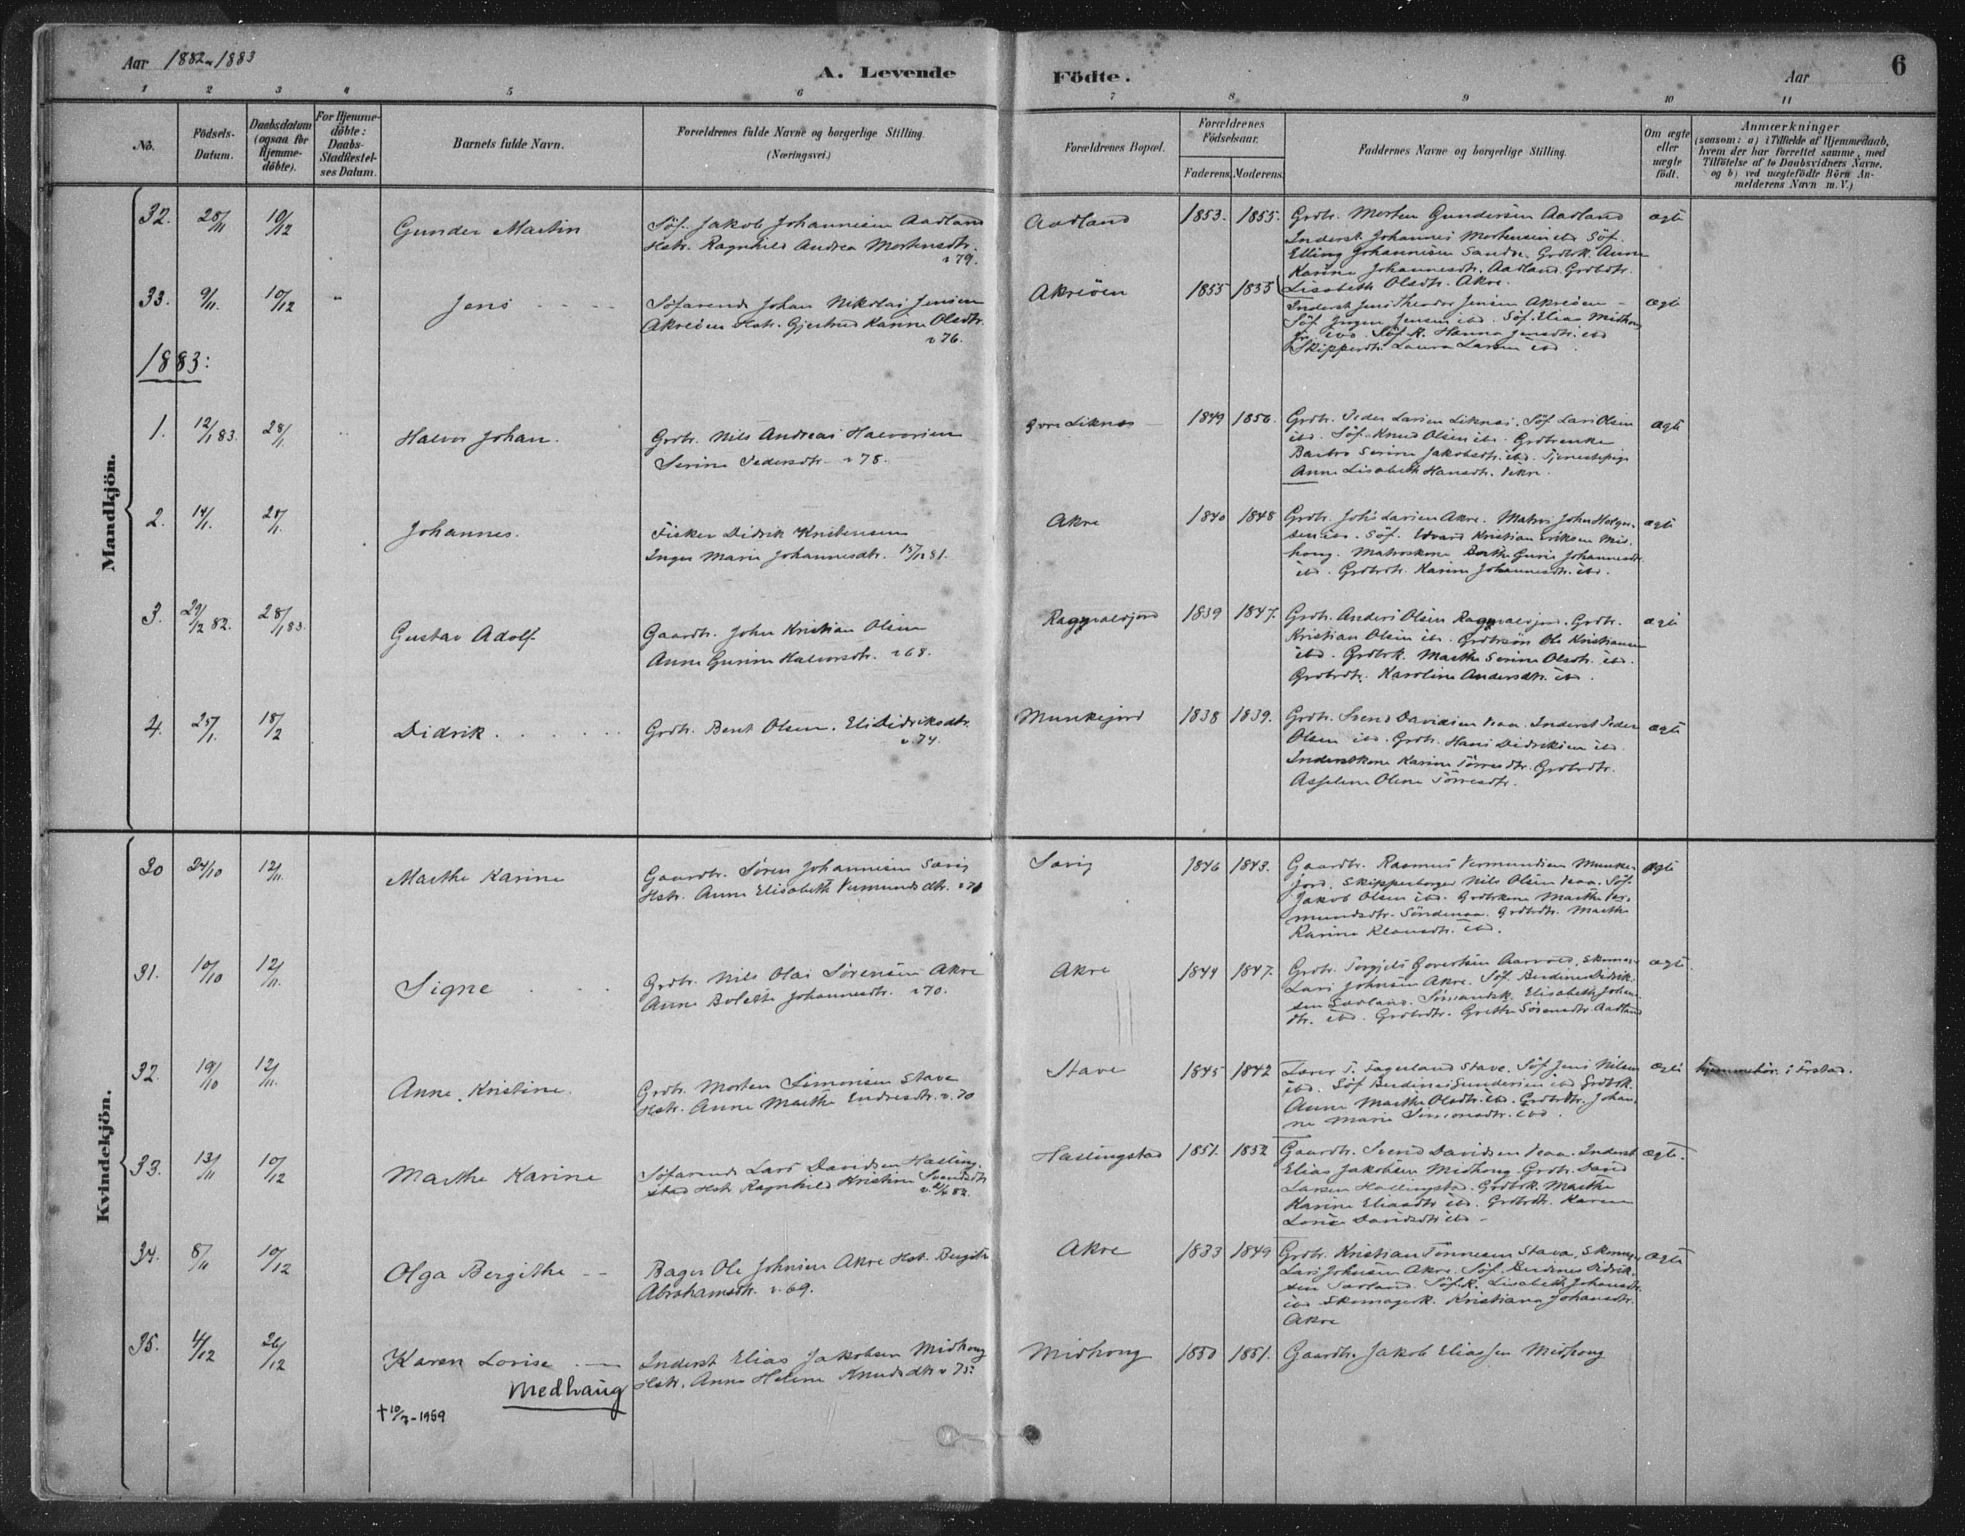 Aar 1882 1883
A. Levende
Födte.
Aar
6
1 2 3 4 5 6 7 8 9 10 11
No.
Födsels-Datum.
Daabsdatum (ogsaa for Hjemmedöbte).
For Hjemmedöbte: Daabs-Stadfæstelses Datum.
Barnets fulde Navn.
Forældrenes fulde Navne og borgerlige Stilling.
(Næringsvei.)
Forældrenes Bopæl.
Forældrenes Födselsaar.
Faderens. Moderens.
Faddernes Navne og borgerlige Stilling.
Om ægte eller uægte födt.
Anmærkninger
(saasom: a) i Tilfælde af Hjemmedaab, hvem der har forrettet samme, med Tilföielse af to Daabsvidners Navne, og b) ved uægtefödte Börn Anmelderens Navn m. V.)
Mandkjön.
32. 10/12 Gunder Martin
Söf. Jakob Johannesen Aadland
Hstr. Ragnhild Andrea Mortensdtr.
v 79.
Aadland 1853. 1855.
Grdbr. Morten Gundersen Aadland
Inderst Johannes Mortensen ibd. Söf.
Elling Johannesen Sande. Grdbrk. Anne
Karine Johannesdtr. Aadland. Grdbrdtr.
Lisabeth Olsdtr. Akre.
ægte
33. 9/11. 10/12 Jens
Söfarende Johan Nikolai Jensen
Akreöen Hstr. Gjertrud Karine Olsdtr.
v 76.
Akreöen 1855 1855
Inderst Jens Theodor Jensen Akreöen
Söf. Jörgen Jensen ibd. Söf. Elias Midhong
ibd. Söf. K. Hanna Jensdtr. ibd
Skipperdtr. Laura Larsen ibd.
ægte
1883:
1. 12/1 83. 28/1 Halvor Johan.
Grdbr. Nils Andreas Halvorsen
Serine Pedersdtr. v 78.
Liknes 1849 1850.
Grdbr. Peder Larsen Liknes. Söf. Lars Olsen
ibd. Söf. Knud Olsen ibd. Grdbrenke
Barbro Serine Jakobsdtr. ibd. Tjenestepige
Anne Lisabeth Hansdtr.
ægte
2. 14/1. Johannes.
Fisker Didrik Kristensen
Inger Marie Johannesdtr.
Akre 1840 1848
Grdbr. Johs Larsen Akre. Matros John Helge-
sen ibd. Söf. Edvard Kristian Eriksen Mid-
hong. Matroskone Berthe Gurie Johannesdtr.
ibd. Grdbrdtr. Karine Johannesdtr. ibd.
ægte
3. 29/12 82. 28/1 83. Gustav Adolf
Gaardbr. John Kristian Olsen
Anne Gurine Halvorsdtr. v 68.
Ragnaldjord 1839 1847.
Grdbr. Anders Olsen Ragnaldjord. Grdbr.
Kristian Olsen ibd. Grdbrsön Ole Kristiansen
ibd. Grdbrk. Marthe Serine Olsdtr. ibd.
Grdbrdtr. Karoline Andersdtr. ibd.
ægte
4. 25/1. 18/2 Didrik.
Grdbr. Bent Olsen. Eli Didriksdtr.
v. 74.
Munkejord 1838 1839.
Grdbr. Svend Davidsen Kaa. Inderst Peder
Olsen ibd. Grdbr. Hans Didriksen ibd.
Inderstkone Karine Törresdtr. Grdbrdtr.
Asseline Oline Törresdtr.
ægte
Kvindekjön.
30 24/10 12/11. Marthe Karine
Gaardbr. Sören Johannesen Sævig
Hstr. Anne Elisabeth Vermundsdtr.
Sævig 1846 1843.
Gaardbr. Rasmus Vermundsen Munke-
jord. Skipperborger Nils Olsen Kaa. Söf.
Jakob Olsen ibd. Grdbrkone Marthe Ver-
mundsdtr. Söndenaa. Grdbrdtr. Marthe
Karine Klausdtr. ibd.
ægte
31. 10/10 12/11. Signe
Grdbr. Nils Olai Sörensen Akre
Anne Bolette Johannesdtr. v 70.
Akre 1844 1847.
Grdbr. Torgjels Govertsen Aarvold. Skomag.
Lars Johnsen Akre. Söf. Berdines Didrik-
sen Sævland. Sömandsk. Elisabeth Johan-
dtr. ibd. Grdbrdtr. Grethe Sörensdtr Aadland
ægte
32. 19/10 12/11. Anne Kristine.
Grdbr. Morten Simonsen Stave
Hstr. Anne Marthe Endresdtr. v. 70
Stave 1845 1842
Lærer T. Fagerland Stave. Söf. Jens Nilsen
ibd. Söf. Berdines Gundersen ibd Grdbrk.
Anne Marthe Olsdtr. ibd. Grdbrdtr. Johan-
ne Marie Simonsdtr. ibd.
ægte
hjemmehör. i Ferstad.
33. 13/11 10/12 Marthe Karine
Söfarende Lars Davidsen Halling-
stad Hstr. Ragnhild Kristine Svendsdtr
Hallingstad 1851. 1852
Gaardbr. Svend Davidsen Kaa. Inderst
Elias Jakobsen Midhong Grdbr. David
Larsen Hallingstad. Grdbrk. Marthe
Karine Eliasdtr ibd. Grdbrdtr. Karen
Lovise Davidsdtr ibd.
ægte.
34. 8/11 10/12 Olga Bergithe
Bager Ole Johnsen Akre Hst. Bergithe
Abrahamsdtr. v. 69.
Akre 1833 1849
Grdbr. Kristian Tönnesen Stava. Skomag.
Lars Johnsen Akre. Söf. Berdines Didrik-
sen Sævland. Söf. K. Lisabeth Johansdtr.
ibd Skomagerk. Kristiana Johansdtr.
Akre
ægte
35. 4/12 26/12 Karen Lovise
Medhaug
†10/7-1959
Inderst Elias Jakobsen Midhong
Hstr. Anne Helene Knudsdtr v 75.
Midhong 1850 1851.
Gaardbr. Jakob Eliassen Midhong